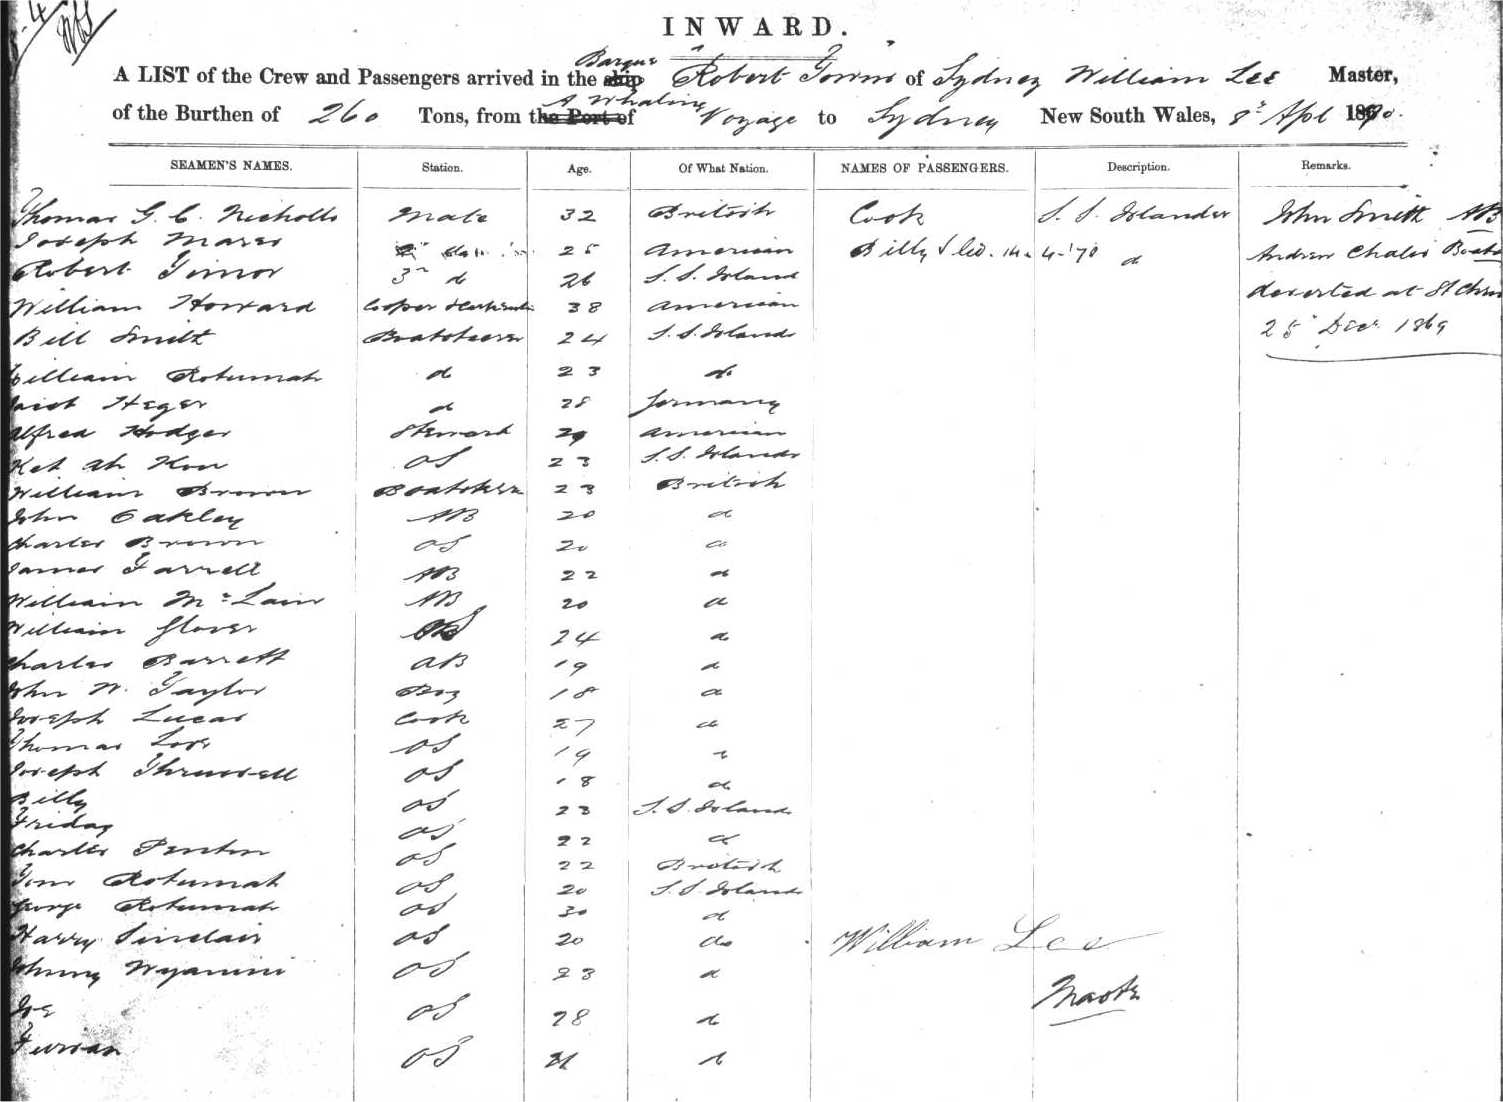 INWARD.
Barque
A LIST of the Crew and Passengers arrived in the ship Robert Towns of Sydney William Lee Master,
A Whaling
of the Burthen of 260 Tons, from the Port of Voyage to Sydney New South Wales, 8th Apl 1870.
SEAMEN'S NAMES. Station. Age. Of What Nation. NAMES OF PASSENGERS. Description. Remarks.
Thomas G. C. Nicholls Mate 32 British Cook S. S. Islander John Smith AB
Joseph 25 American Billy d Andrew Boats
Robert Timor 3rd d 26 S. S. Island deserted at St
William Howard Cooper 38 American
Bill Smith Boatsteerer 24 S. S. Islands 25 Decr 1869
William Rotumah d 23 do
Jacob Heger d 28 Germany
Alfred Hodger Steward 29 American
Ket Ah Kow OS 23 S. S. Islands
William Brown 23 British
John Oakley AB 20 d
Charles Brown OS 20 d
James Farrell AB 22 d
William McLain AB 20 d
William Glover OS 24 d
Charles Barrett AB 19 d
John W. Taylor Boy 18 d
Joseph Lucas Cook 27 d
Thomas Love OS 19 d
Joseph OS 18 d
Billy OS 23 S. S. Islands
Friday OS 22 d
Charles Penton OS 22 British
Tom Rotumah OS 20 S. S. Islands
George Rotumah OS 30 d
Harry Sinclair OS 20 do
William Lee
Johnny OS 23 d
Master
Joe OS 28 d
OS d